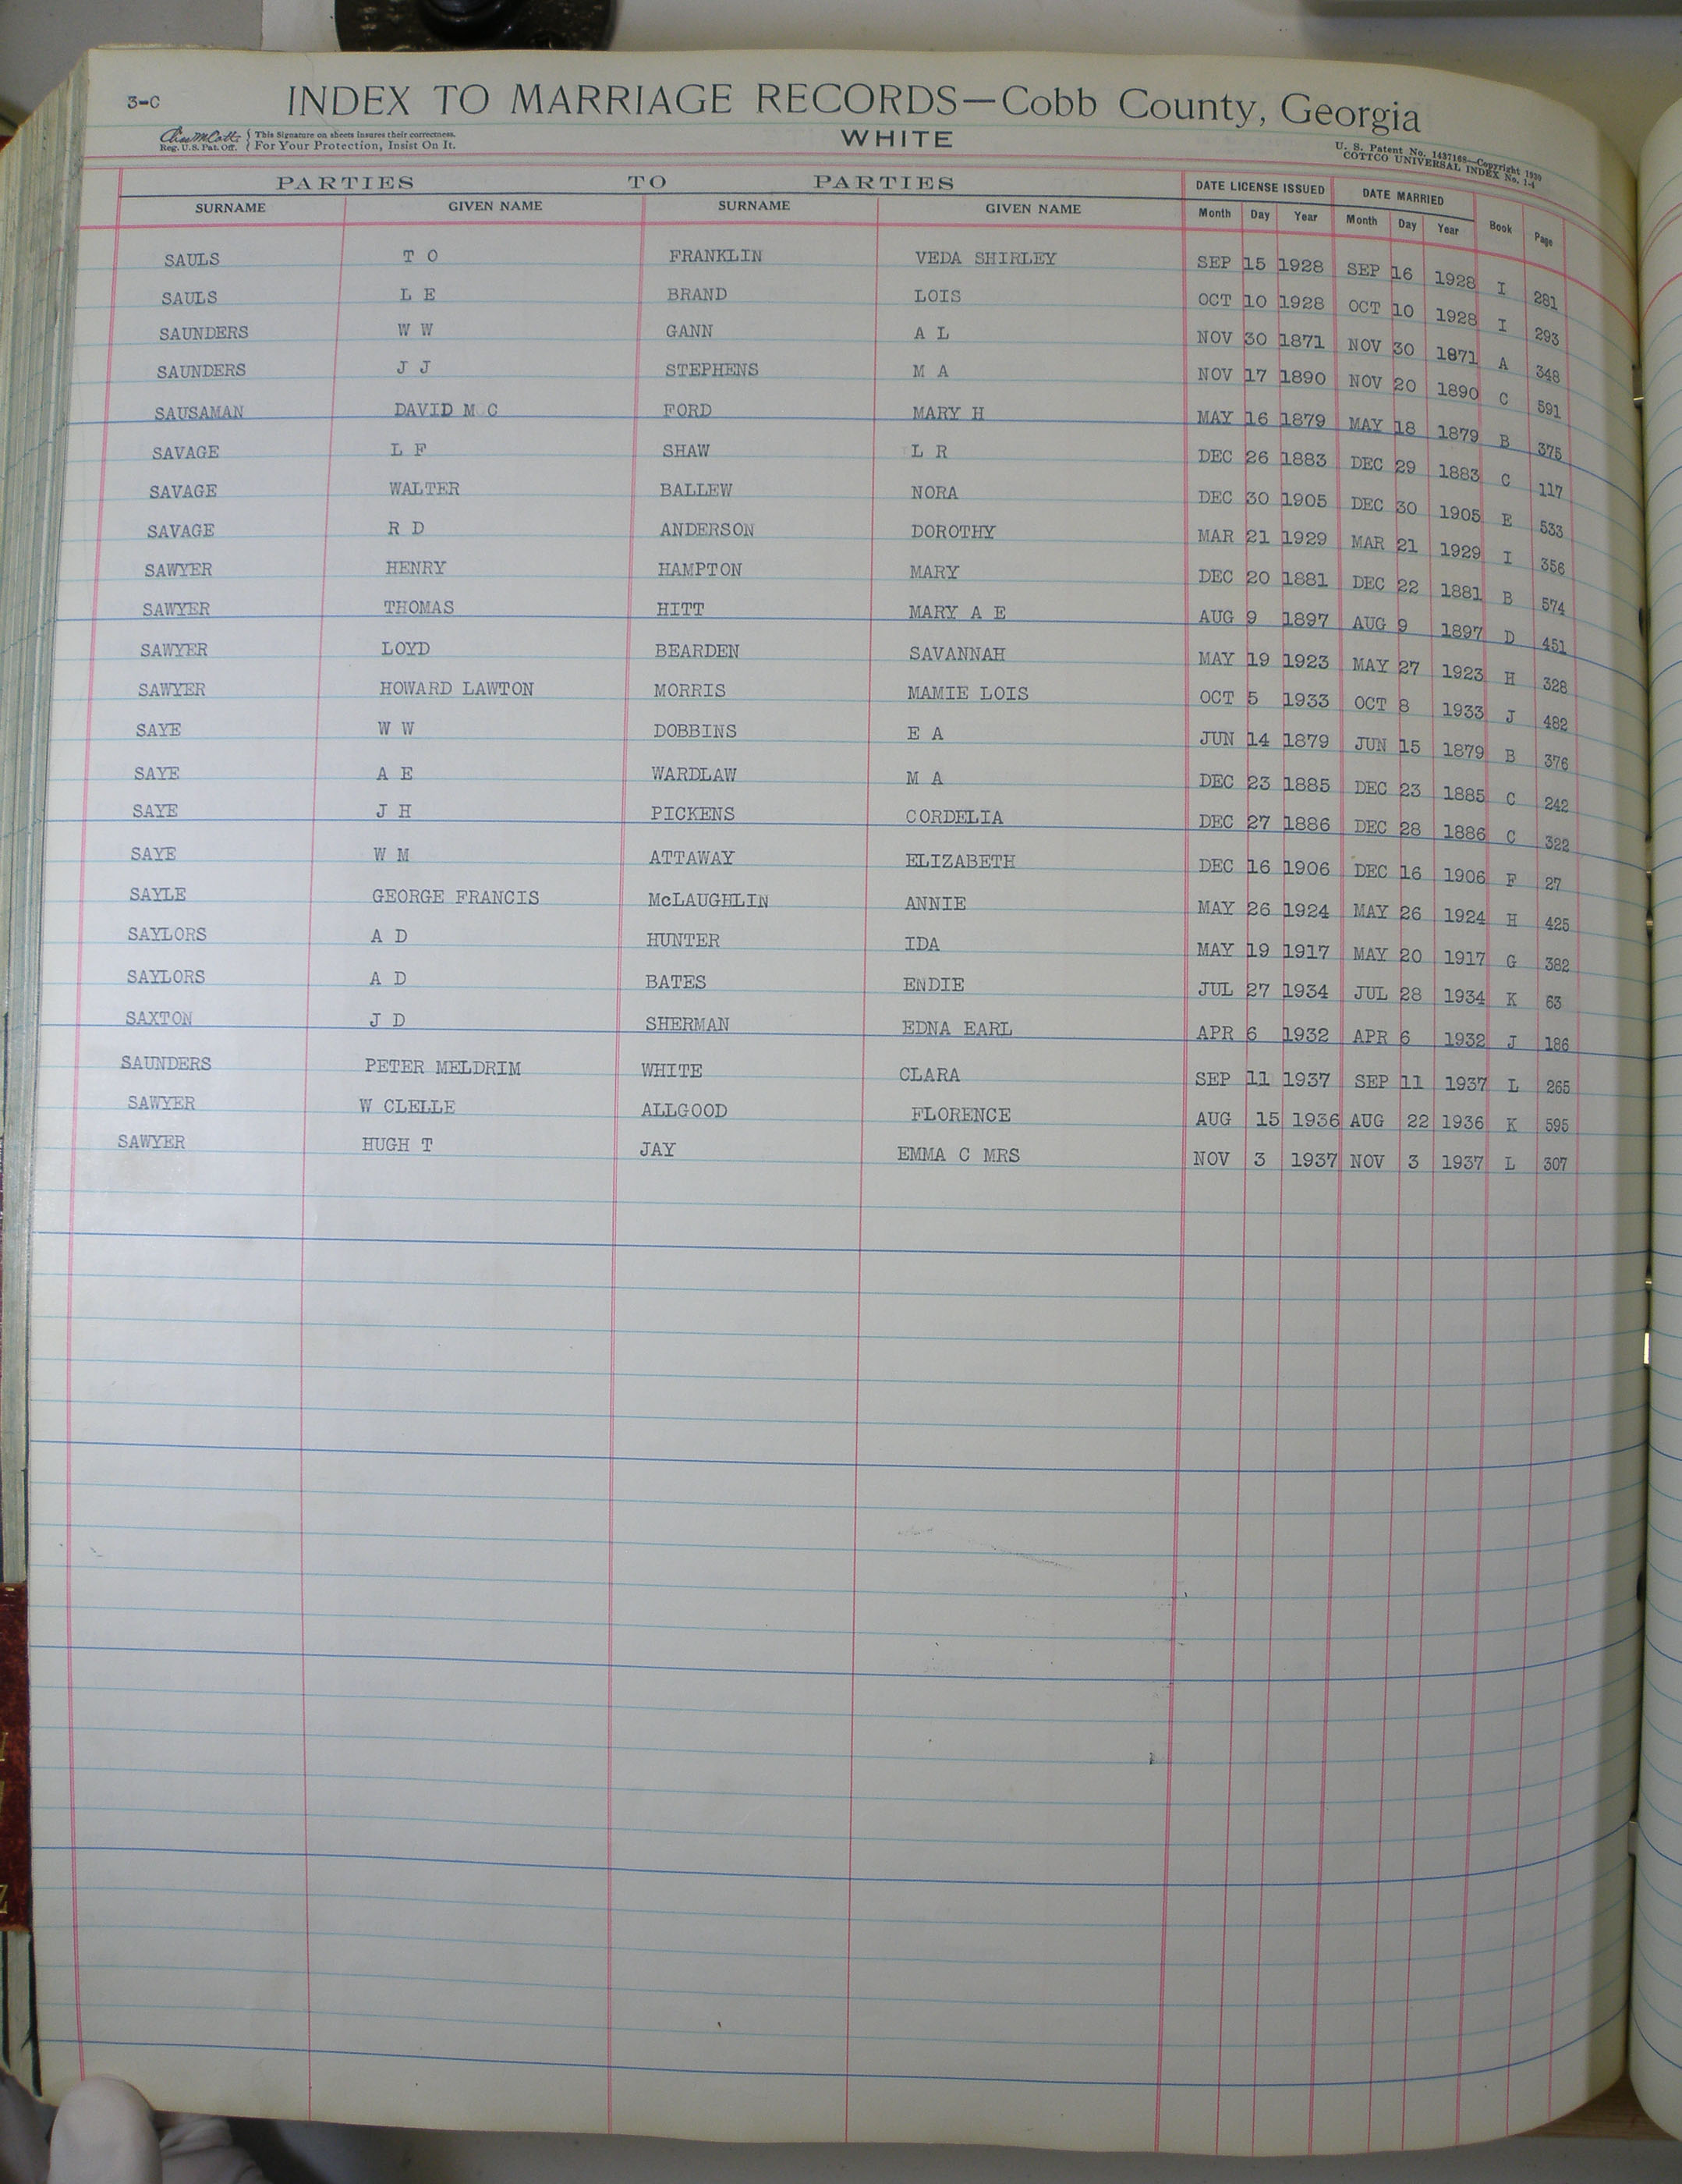 3-C
INDEX TO MARRIAGE RECORDS—Cobb County, Georgia
This Signature on sheets insures their correctness.
Reg. U.S. Pat. Off. For Your Protection, Insist On It.
WHITE
U. S. Patent No. 1437168—Copyright 1930
COTTCO UNIVERSAL INDEX No. 1-4
PARTIES TO PARTIES DATE LICENSE ISSUED DATE MARRIED
SURNAME GIVEN NAME SURNAME GIVEN NAME Month Day Year Month Day Year Book Page
SAULS T O FRANKLIN VEDA SHIRLEY SEP 15 1928 SEP 16 1928 I 281
SAULS L E BRAND LOIS OCT 10 1928 OCT 10 1928 I 293
SAUNDERS W W GANN A L NOV 30 1871 NOV 30 1871 A 348
SAUNDERS J J STEPHENS M A NOV 17 1890 NOV 20 1890 C 591
SAUSAMAN DAVID M C FORD MARY H MAY 16 1879 MAY 18 1879 B 375
SAVAGE L F SHAW L R DEC 26 1883 DEC 29 1883 C 117
SAVAGE WALTER BALLEW NORA DEC 30 1905 DEC 30 1905 E 533
SAVAGE R D ANDERSON DOROTHY MAR 21 1929 MAR 21 1929 I 356
SAWYER HENRY HAMPTON MARY DEC 20 1881 DEC 22 1881 B 574
SAWYER THOMAS HITT MARY A E AUG 9 1897 AUG 9 1897 D 451
SAWYER LOYD BEARDEN SAVANNAH MAY 19 1923 MAY 27 1923 H 328
SAWYER HOWARD LAWTON MORRIS MAMIE LOIS OCT 5 1933 OCT 8 1933 J 482
SAYE W W DOBBINS E A JUN 14 1879 JUN 15 1879 B 376
SAYE A E WARDLAW M A DEC 23 1885 DEC 23 1885 C 242
SAYE J H PICKENS CORDELIA DEC 27 1886 DEC 28 1886 C 322
SAYE W M ATTAWAY ELIZABETH DEC 16 1906 DEC 16 1906 F 27
SAYLE GEORGE FRANCIS McLAUGHLIN ANNIE MAY 26 1924 MAY 26 1924 H 425
SAYLORS A D HUNTER IDA MAY 19 1917 MAY 20 1917 G 382
SAYLORS A D BATES ENDIE JUL 27 1934 JUL 28 1934 K 63
SAXTON J D SHERMAN EDNA EARL APR 6 1932 APR 6 1932 J 186
SAUNDERS PETER MELDRIM WHITE CLARA SEP 11 1937 SEP 11 1937 L 265
SAWYER W CLELLE ALLGOOD FLORENCE AUG 15 1936 AUG 22 1936 K 595
SAWYER HUGH T JAY EMMA C MRS NOV 3 1937 NOV 3 1937 L 307